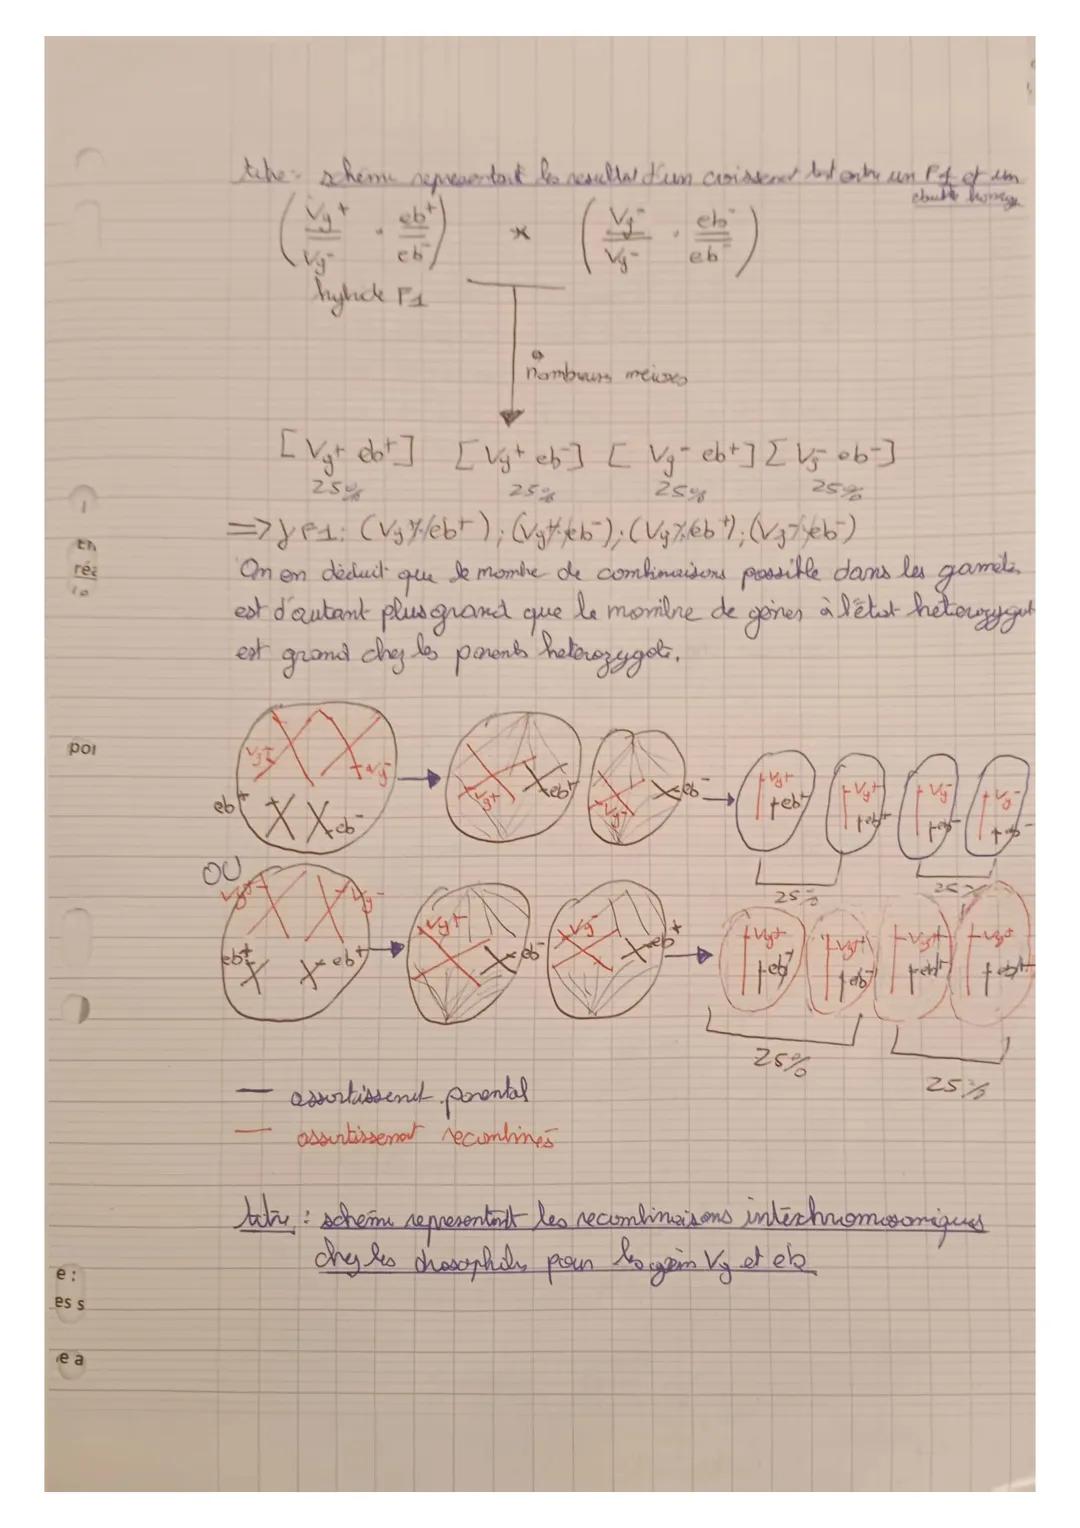 titre : schéma représentant les résultat d'un croissement test entre un F1 et un
double homozy
(Vg+ / Vg- . eb+ / eb-) × (Vg- / Vg- . eb- / eb-)
hybride F1
nombreuses méioses
[Vg+ eb+] [Vg+ eb-] [Vg- eb+] [Vg- eb-]
25% 25% 25% 25%
=> γ F1 : (Vg+/eb+) ; (Vg+/eb-) ; (Vg-/eb+) ; (Vg-/eb-)
On en déduit que le nombre de combinaisons possible dans les gamète
est d'autant plus grand que le nombre de gènes à l'état hétérozygot
est grand chez les parents hétérozygote.
Vg+ Vg- Vg+ eb+ Vg- eb- Vg+ Vg+ Vg- Vg-
eb+ eb- eb+ eb+ eb- eb-
25% 25%
OU
Vg+ Vg- Vg+ eb- Vg- eb+ Vg+ Vg+ Vg+ Vg+
eb+ eb+ eb- eb- eb+ eb+
25% 25%
assortissement parental
assortissement recombinés
titre : schéma représentant les recombinaisons interchromosomiques
chez les drosophiles pour les gèin Vg et eb
th
réc
poi
e :
es s
e a